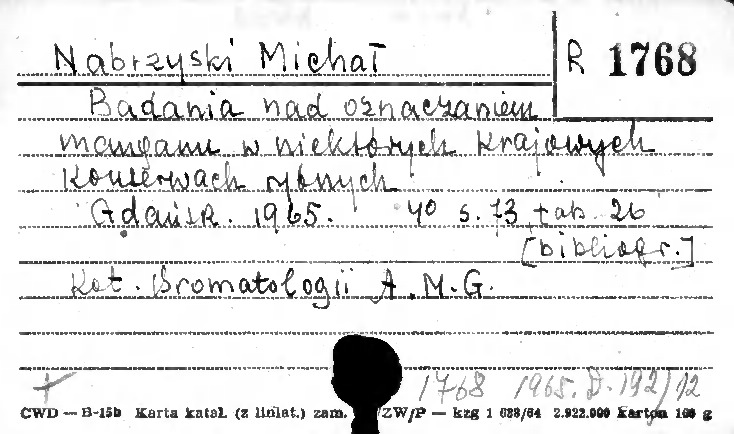 Nabrzyski Michał
R 1768
Badania nad oznaczaniem
manganu w niektórych krajowych
konserwach rybnych
Gdańsk. 1965. 4° s. 73, tab. 26
[bibliogr.]
Kat. Bromatologii A.M.G.
+ 1768 1965. D. 192/12
CWD — B-15b Karta katal. (z liniat.) zam. ZW/P — kzg 1 688/64 2.922.000 Karton 160 g